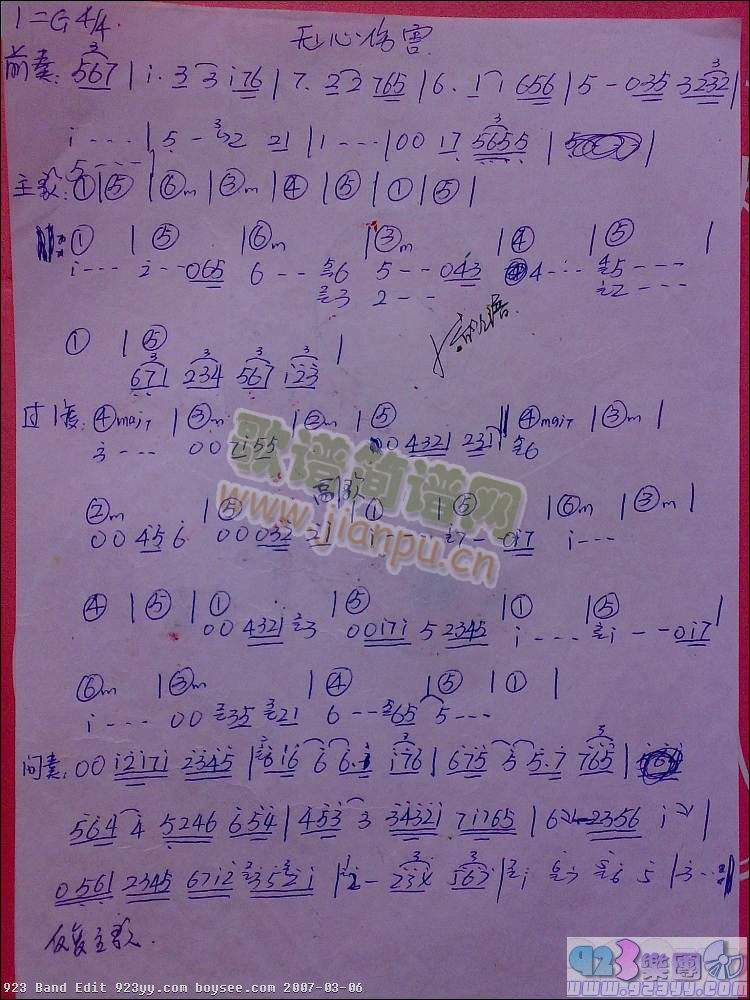 1=G 4/4.
无心伤害
前奏: 567 | i. 3 3 i76 | 7. 2 2 765 | 6. 1 1 656 | 5 - 035 3232 |
i - - - - | 5 - 2 21 | 1 - - - | 00 17 5655 |
主歌: ① | ⑤ | ⑥m | ③m | ④ | ⑤ | ① | ⑤ |
① | ⑤ | ⑥m | ③m | ④ | ⑤ |
i - - - 2 - - 065 6 - - - 6 5 - - 043 4 - - - 5 - - - -
3 2 - - - i2 - - - -
① | ⑤ |
671 234 567 i23
过度: ④maj7 | ③m | ②m | ⑤ || ④maj7 | ③m |
3 - - - 00 7i55 00 4321 231 6
歌谱简谱网
www.jianpu.cn
②m | ⑤ 副歌 | ① | ⑤ | ⑥m | ③m |
00 45 6 00 032 21 i - - - i7 - - 0i7 i - - -
④ | ⑤ | ① | ⑤ | ① | ⑤ |
00 4321 3 00i7i 5 2345 i - - - - i - - 0i7
⑥m | ③m | ④ | ⑤ | ① |
i - - - - 00 35 21 6 - - 65 5 - - -
间奏: 00 i2i7i 2345 | 6i6 6 6. i76 | 675 5 5.7 765 |
564 4 5246 654 | 453 3 34321 7i765 | 6 2356 i |
0561 2345 67i2 352i | 2 - 567 | i 3 6 5 | 3 - - -
反复主歌.
923 Band Edit 923yy.com boysee.com 2007-03-06
923樂團
www.923yy.com